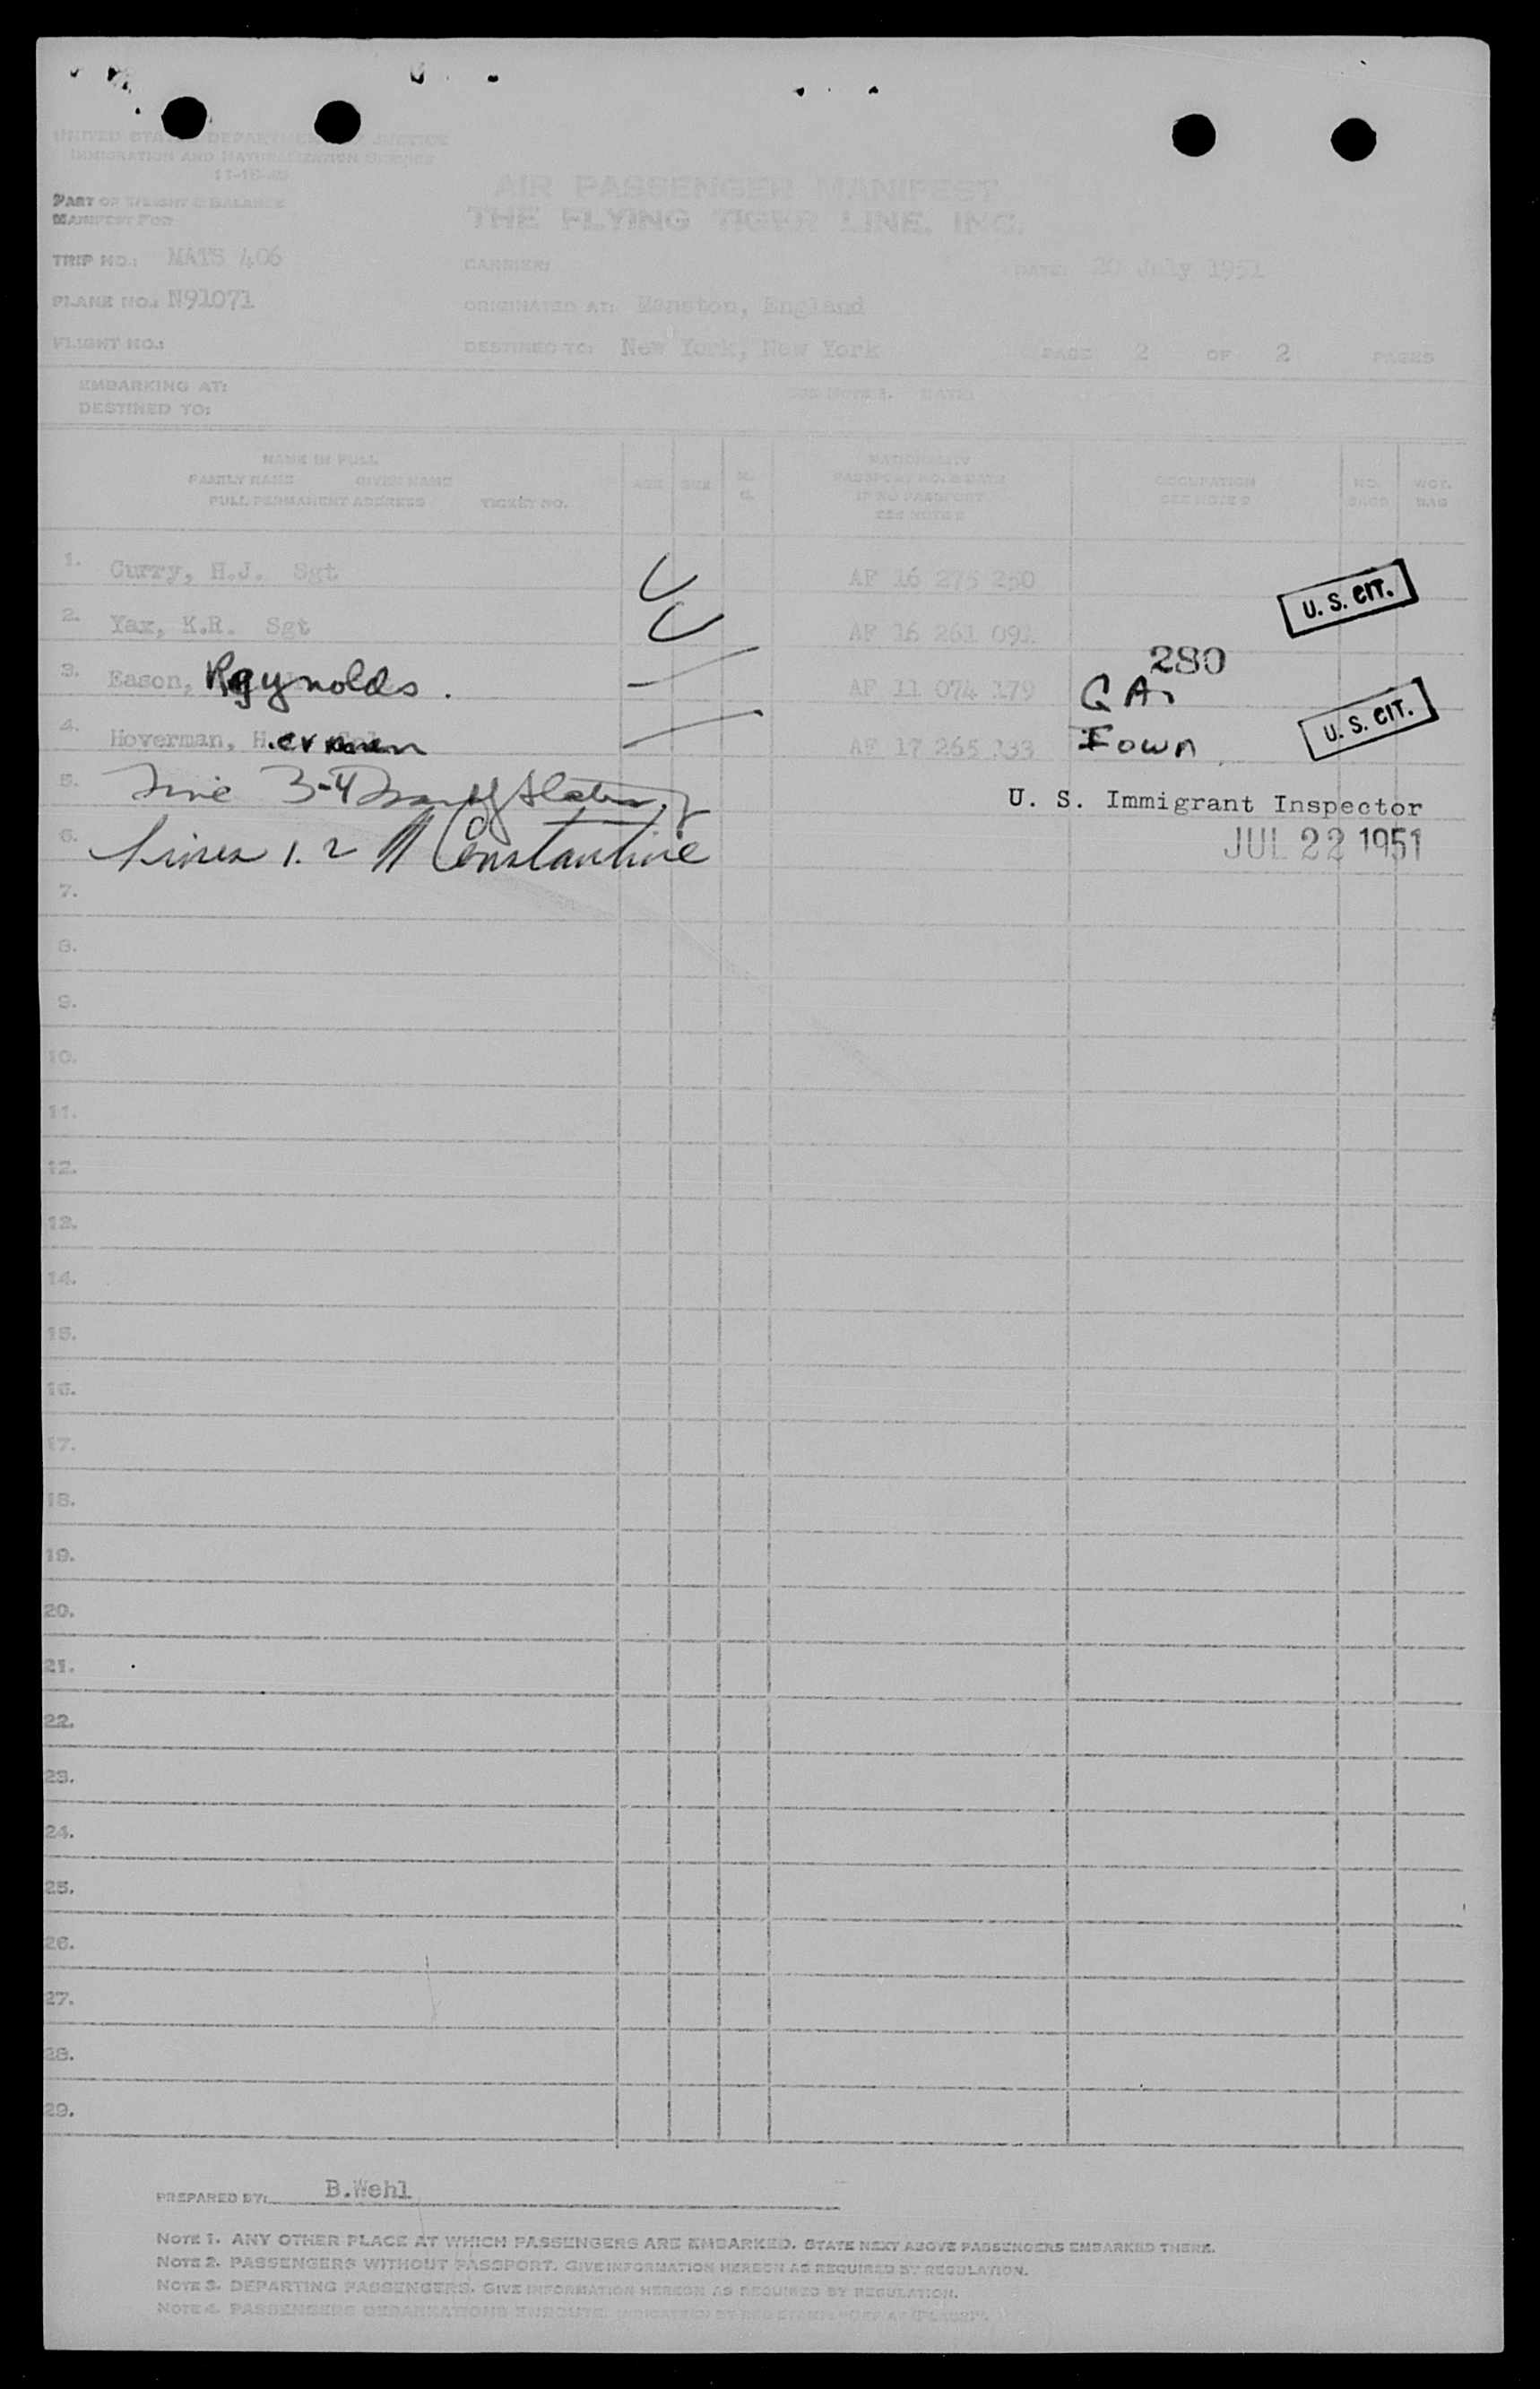 UNITED STATES DEPARTMENT OF JUSTICE
IMMIGRATION AND NATURALIZATION SERVICE
11-18-49
PART OF WEIGHT & BALANCE
MANIFEST FOR
AIR PASSENGER MANIFEST
THE FLYING TIGER LINE, INC.
TRIP NO.: MATS 406 CARRIER: DATE: 20 July 1951
PLANE NO.: N91071 ORIGINATED AT: Manston, England
FLIGHT NO.: DESTINED TO: New York, New York PAGE 2 OF 2 PAGES
EMBARKING AT: SEE NOTE 3. DATE:
DESTINED TO:
NAME IN FULL
FAMILY NAME GIVEN NAME
FULL PERMANENT ADDRESS TICKET NO.
AGE SEX
NATIONALITY
PASSPORT NO. & DATE
IF NO PASSPORT
SEE NOTE 2
OCCUPATION
SEE NOTE 2
NO. BAGS
WGT. BAG
1. Curry, H.J. Sgt AF 16 275 250 U.S. CIT.
2. Yax, K.R. Sgt AF 16 261 091
280
3. Eason, Reynolds. AF 11 074 179 GA.
4. Hoverman, H.erman AF 17 265 133 Iowa U.S. CIT.
5. Line 3-4
U. S. Immigrant Inspector
6. Lines 1. 2 Constantine
JUL 22 1951
7.
8.
9.
10.
11.
12.
13.
14.
15.
16.
17.
18.
19.
20.
21.
22.
23.
24.
25.
26.
27.
28.
29.
PREPARED BY: B.Wehl
NOTE 1. ANY OTHER PLACE AT WHICH PASSENGERS ARE EMBARKED. STATE NEXT ABOVE PASSENGERS EMBARKED THERE.
NOTE 2. PASSENGERS WITHOUT PASSPORT. GIVE INFORMATION HEREON AS REQUIRED BY REGULATION.
NOTE 3. DEPARTING PASSENGERS. GIVE INFORMATION HEREON AS REQUIRED BY REGULATION.
NOTE 4. PASSENGERS DEBARKATIONS ENROUTE INDICATED BY RED STAMP "OFF AT (PLACE)".